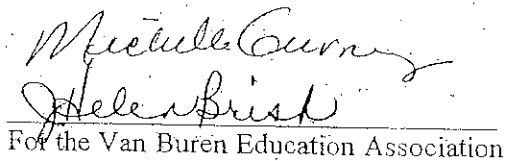 Michelle Gurney
J. Helen Brish
For the Van Buren Education Association